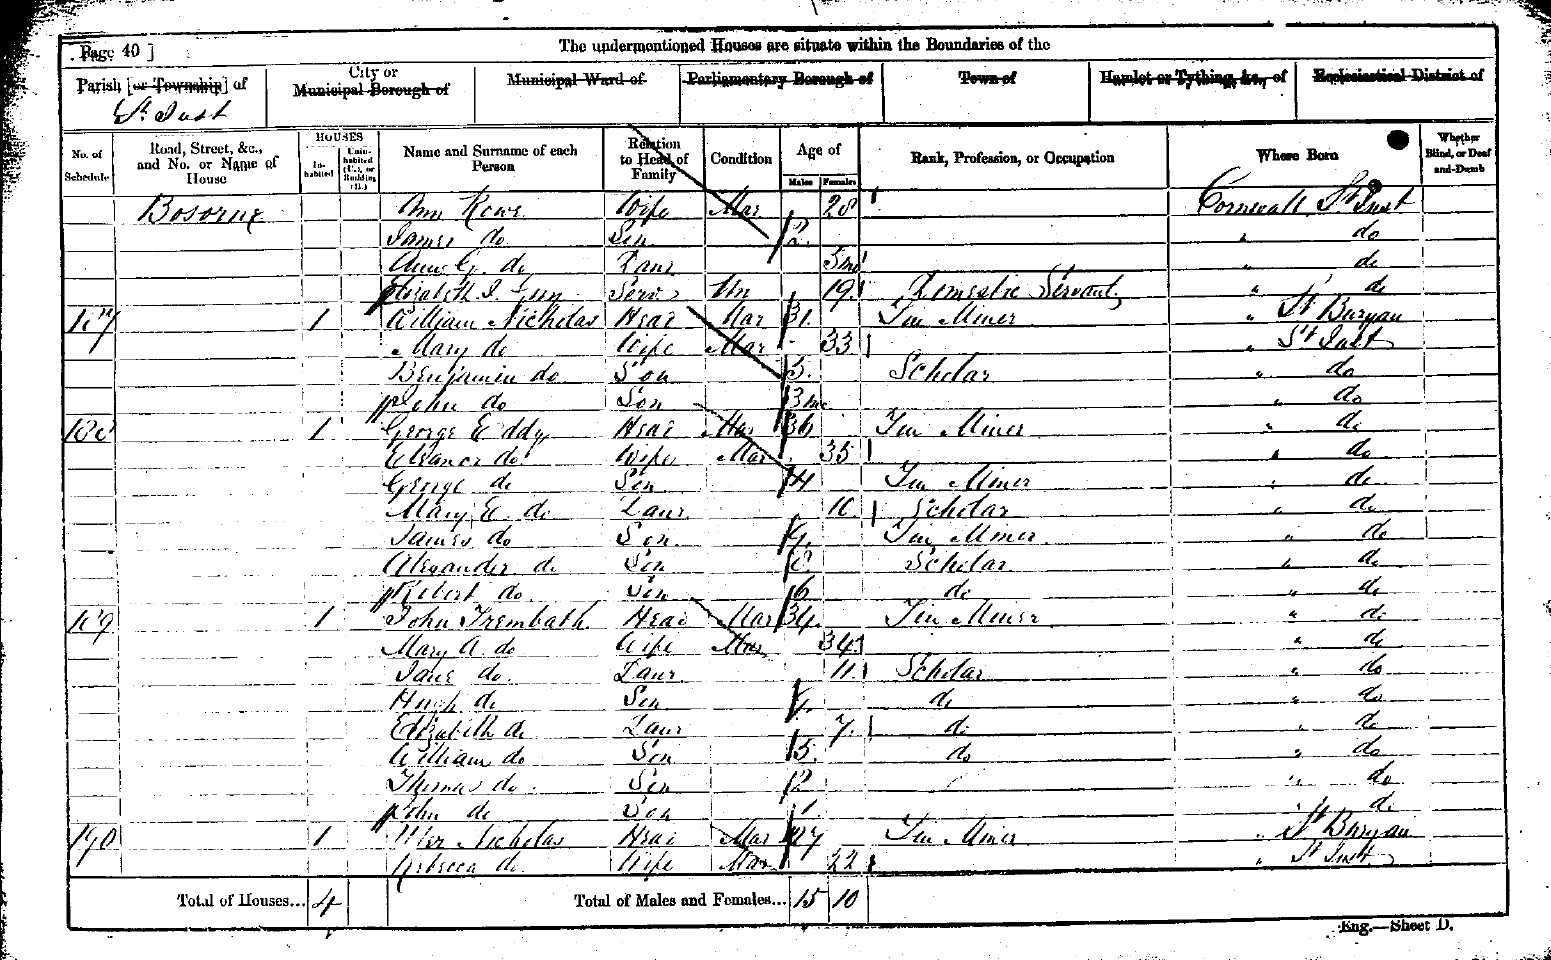 Page 40 ]
The undermentioned Houses are situate within the Boundaries of the
Parish [or Township] of
St. Just
City or
Municipal Borough of
Municipal Ward of
Parliamentary Borough of
Town of
Hamlet or Tything, &c., of
Ecclesiastical District of
No. of Schedule
Road, Street, &c., and No. or Name of House
HOUSES
In-habited
Unin-habited (U.), or Building (B.)
Name and Surname of each Person
Relation to Head of Family
Condition
Age of
Males
Females
Rank, Profession, or Occupation
Where Born
Whether Blind, or Deaf-and-Dumb
Ann Rowe Wife Mar 28 Cornwall St. Just
James do Son 2 " do
Ann G. do Daur 5mo " do
Elizabeth Serv Un 19 Domestic Servant " do
187 1 William Nicholas Head Mar 31 Tin Miner " St Buryan
Mary do Wife Mar 33 " St Just
Benjamin do Son 5 Scholar " do
John do Son 3mo " do
188 1 George Eddy Head Mar 36 Tin Miner " do
Eleanor do Wife Mar 35 " do
George do Son 14 Tin Miner " do
Mary E. do Daur 10 Scholar " do
James do Son 9 Tin Miner " do
Alexander do Son 8 Scholar " do
Robert do Son 6 do " do
189 1 John Trembath Head Mar 34 Tin Miner " do
Mary A. do Wife Mar 34 " do
Jane do Daur 11 Scholar " do
Hugh do Son 9 do " do
Elizabeth do Daur 7 do " do
William do Son 5 do " do
Thomas do Son 2 " do
John do Son 1 " do
190 1 Nicholas Head Mar 27 Tin Miner " St Buryan
Rebecca do Wife Mar 22 " St Just
Total of Houses... 4
Total of Males and Females... 15 10
Eng.—Sheet D.